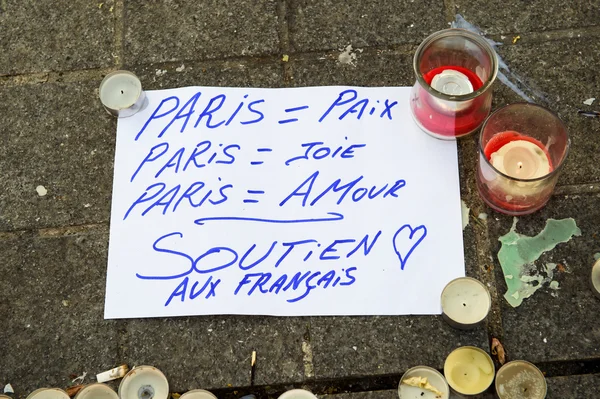 PARIS = PAIX
PARIS = JOIE
PARIS = AMOUR
SOUTIEN ♡
AUX FRANÇAIS